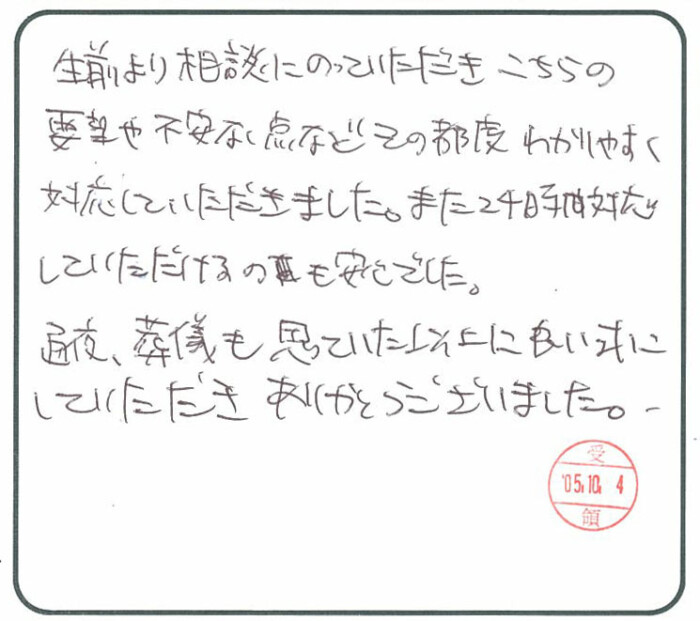 生前より相談にのっていただき こちらの
要望や不安な点など その都度 わかりやすく
対応していただきました。また24時間対応
していただけるの も安心でした。
通夜、葬儀も 思っていた以上に良い式に
していただき ありがとうございました。
受
'05.10. 4
領